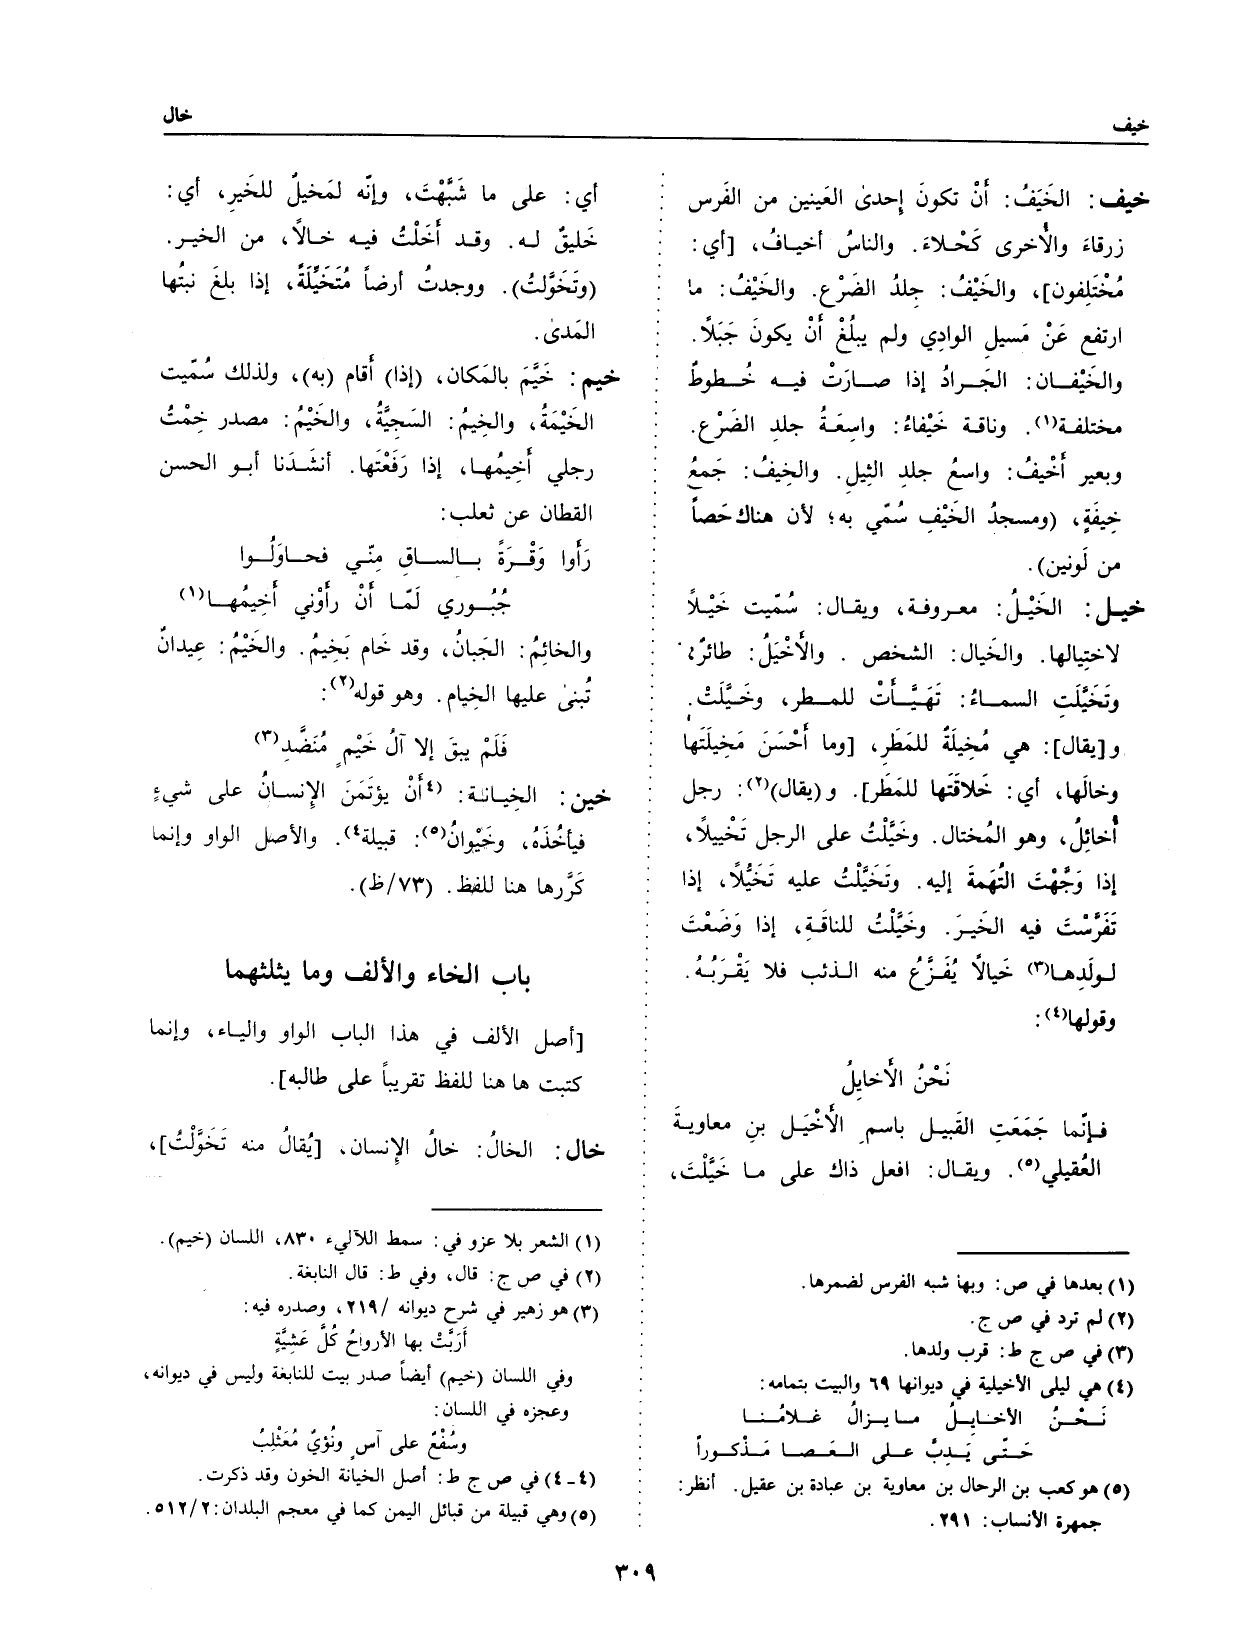 خيف
خال
خيف: الخَيَفُ: أَنْ تكونَ إحدىٰ العَينين من الفَرس
زرقاءَ والأُخرى كَحْلاءَ. والناسُ أخيافُ، [أي:
مُخْتلِفون]، والخَيْفُ: جلدُ الضَرْع. والخَيْفُ: ما
ارتفع عَنْ مَسيل الوادِي ولم يبلُغْ أَنْ يكونَ جَبَلاً.
والخَيْفَان: الجَرادُ إذا صارَتْ فيه خُطوطٌ
مختلفة(١). وناقة خَيْفاءُ: واسِعَةُ جلدِ الضَرْع.
وبعير أَخْيفُ: واسعُ جلدِ الثيل. والخِيفُ: جَمعُ
خِيفَةٍ، (ومسجدُ الخَيْفِ سُمّي به؛ لأن هناك حَصاً
من لَونين).
خيل: الخَيْلُ: معروفة، ويقال: سُمّيت خَيْلاً
لاختِيالها. والخَيال: الشخص . والأَخْيَلُ: طائرٌ.
وتَخَيَّلَتِ السماءُ: تَهَيَّأَتْ للمطر، وخَيَّلَتْ.
و[يقال]: هي مُخِيلَةٌ للمَطَر، [وما أَحْسَنَ مَخِيلَتَها
وخالَها، أي: خَلاقَتَها للمَطَر]. و(يقال)(٢): رجل
أُخائِلُ، وهو المُختال. وخَيَّلْتُ على الرجل تَخْييلاً،
إذا وَجَّهْتَ التُهَمَةَ إليه. وتَخَيَّلْتُ عليه تَخَيُّلاً، إذا
تَفَرَّسْتَ فيه الخَيرَ. وخَيَّلْتُ للناقَةِ، إذا وَضَعْتَ
لولَدِها(٣) خَيالاً يُفَزَّعُ منه الذئب فلا يَقْرَبُهُ.
وقولها(٤):
نَحْنُ الأَخايِلُ
فإنّما جَمَعَتِ القَبيل باسمِ الأَخْيَل بنِ معاويةَ
العُقيلي(٥). ويقال: افعل ذاك على ما خَيَّلْتَ،
(١) بعدها في ص: وبها شبه الفرس لضمرها.
(٢) لم ترد في ص ج.
(٣) في ص ج ط: قرب ولدها.
(٤) هي ليلى الأخيلية في ديوانها ٦٩ والبيت بتمامه:
نَحْنُ الأخايِلُ ما يزالُ غلامُنا
حَتّى يَدِبَّ على العَصا مَذْكوراً
(٥) هو كعب بن الرحال بن معاوية بن عبادة بن عقيل. أنظر:
جمهرة الأنساب: ٢٩١.
أي: على ما شَبَّهْتَ، وإنّه لمَخيلٌ للخَيرِ، أي:
خَليقٌ له. وقد أَخَلْتُ فيه خالاً، من الخير.
(وتَخَوَّلتُ). ووجدتُ أرضاً مُتَخَيِّلَةً، إذا بلغَ نبتُها
المَدىٰ.
خيم: خَيَّمَ بالمَكان، (إذا) أَقام (به)، ولذلك سُمّيت
الخَيْمَةُ، والخِيمُ: السَجيَّةُ، والخَيْمُ: مصدر خِمْتُ
رجلي أَخِيمُها، إذا رَفَعْتَها. أنشَدَنا أبو الحسن
القطان عن ثعلب:
رَأَوا وَقْرَةً بالساقِ مِنّي فحاوَلُوا
جُبُوري لَمّا أَنْ رأَوْني أَخِيمُها(١)
والخائِمُ: الجَبانُ، وقد خَام يَخِيمُ. والخَيْمُ: عِيدانٌ
تُبنىٰ عليها الخِيام. وهو قوله(٢):
فَلَمْ يبقَ إلا آلُ خَيْمٍ مُنَضَّدِ(٣)
خين: الخِيانة: (٤أَنْ يؤتَمَنَ الإنسانُ على شيءٍ
فيأخُذَهُ، وخَيْوانُ(٥): قبيلة٤). والأصل الواو وإنما
كَرَّرها هنا للفظ. (٧٣/ظ).
باب الخاء والألف وما يثلثهما
[أصل الألف في هذا الباب الواو والياء، وإنما
كتبت ها هنا للفظ تقريباً على طالبه].
خال: الخالُ: خالُ الإنسان، [يُقالُ منه تَخَوَّلْتُ]،
(١) الشعر بلا عزو في: سمط اللآليء ٨٣٠، اللسان (خيم).
(٢) في ص ج: قال، وفي ط: قال النابغة.
(٣) هو زهير في شرح ديوانه /٢١٩، وصدره فيه:
أَرَبَّتْ بها الأرواحُ كُلَّ عَشِيَّةٍ
وفي اللسان (خيم) أيضاً صدر بيت للنابغة وليس في ديوانه،
وعجزه في اللسان:
وسُفْعٌ على آسٍ ونُؤيٌ مُعَثْلِبُ
(٤-٤) في ص ج ط: أصل الخيانة الخون وقد ذكرت.
(٥) وهي قبيلة من قبائل اليمن كما في معجم البلدان: ٥١٢/٢.
٣٠٩